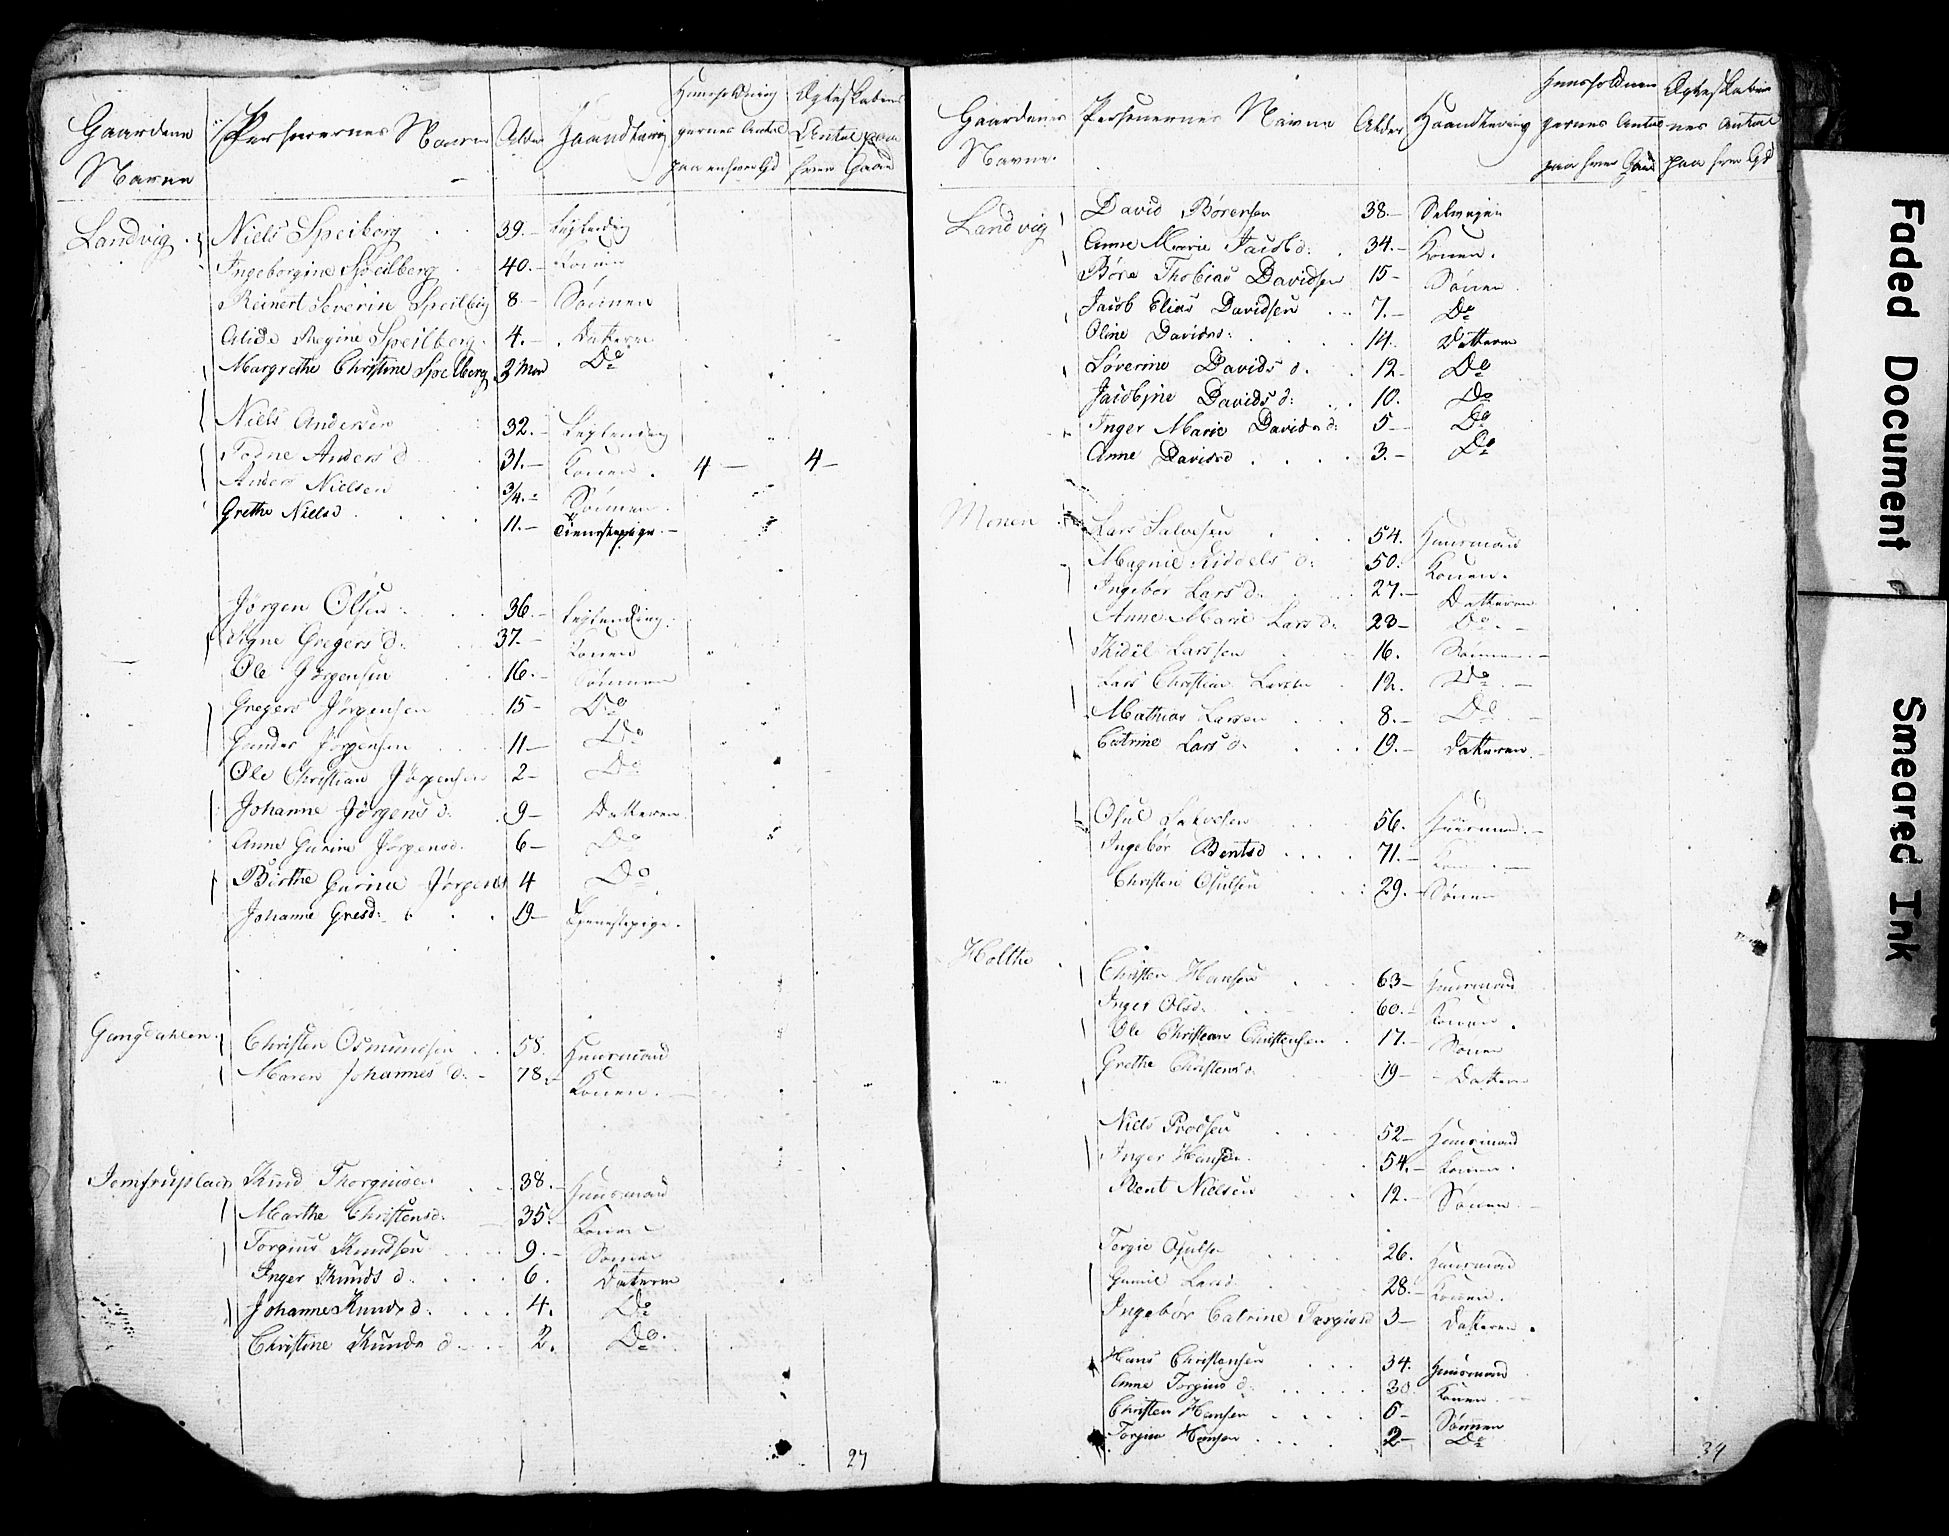 Gaardene Personernes Navne Alder Haandtering Huusholdnin Ægteskabens
Navne gernes Antal Antal paa
paa enhver Gd hver Gaard
Landvig Niels Speilberg 39 Leylending
Ingeborgine Speilberg 40 Konen
Reinert Severin Speilberg 8 Sønnen
Alida Regine Speilberg 4 Datteren
Margrethe Christine Speilberg 3 Mon Do
Niels Andersen 32 Leylending
Todne Anders d 31 Konen 4 4
Anders Nielsen 3/4 Sønnen
Grethe Nielsd 11 Tienestepige
Jörgen Olsen 36 Leylending
Signe Gregers d: 37 Konen
Ole Jörgensen 16 Sønnen
Gregers Jörgensen 15 Do
Gunder Jörgensen 11 Do
Ole Christian Jörgensen 2 Do
Johanne Jörgens d. 9 Datteren
Anne Gurine Jörgensd. 6 Do
Birthe Gurine Jörgensd 4 Do
Johanne Gresd: 19 Tjenestepige
Gangdahlen Christen Osmundsen 58 Huusmand
Maren Johannes d: 78 Konen
Jomfruplads Knud Thorgiusen 38 Huusmand
Marthe Christensd: 35 Konen
Torgius Knudsen 9 Sønnen
Inger Knuds d. 6 Datteren
Johanne Knuds d. 4 Do
Christine Knuds d 2. Do
27
Gaardenes Personernes Navne Alder Haandtering Huusholdnin Ægteskaber
Navne. gernes Antal nes Antal
paa hver Gaard paa hver Gd
Landvig David Børensen 38 Selveyer
Anne Marie Jacobd: 34 Konen
Børe Thobias Davidsen 15 Sønnen
Jacob Elias Davidsen 7 Do
Oline Davidsd: 14 Datteren
Severine Davids d. 12 Do
Jacobine Davids d: 10. Do
Inger Marie Davids d: 5 Do
Anne Davidsd 3 Do
Monen Lars Salvesen 54. Huusmand
Magnil Kiddels d: 50. Konen
Ingebør Lars d. 27 Datteren
Anne Marie Lars d. 23 Do
Kidil Larssen 16. Sønnen
Lars Christian Larsen 12. Do
Mathias Larsen 8 Do
Catrine Lars d. 19 Datteren
Osul Salvesen 56. Huusmand
Ingebør Bentsd 71 Konen
Christen Osulsen 29 Sønnen
Holthe Christen Hansen 63 Huusmand
Inger Olsd. 60 Konen
Ole Christian Christensen 17 Sønnen
Grethe Christensd. 19 Datteren
NielsProesen 52 Huusmand
Inger Hansd. 54 Konen
Bent Nielsen 12 Sønnen
Torgie Osulse 26. Huusmand
Gunil Larsd. 28 Konen
Ingebør Catrine Torgiusd 3 Datteren
Hans Christensen 34. Huusmand
Anne Torgius d: 30 Konen
Christen Hansen 5 Sønnen
Torgius Hansen 2 Do
34
Faded Document
Smeared Ink